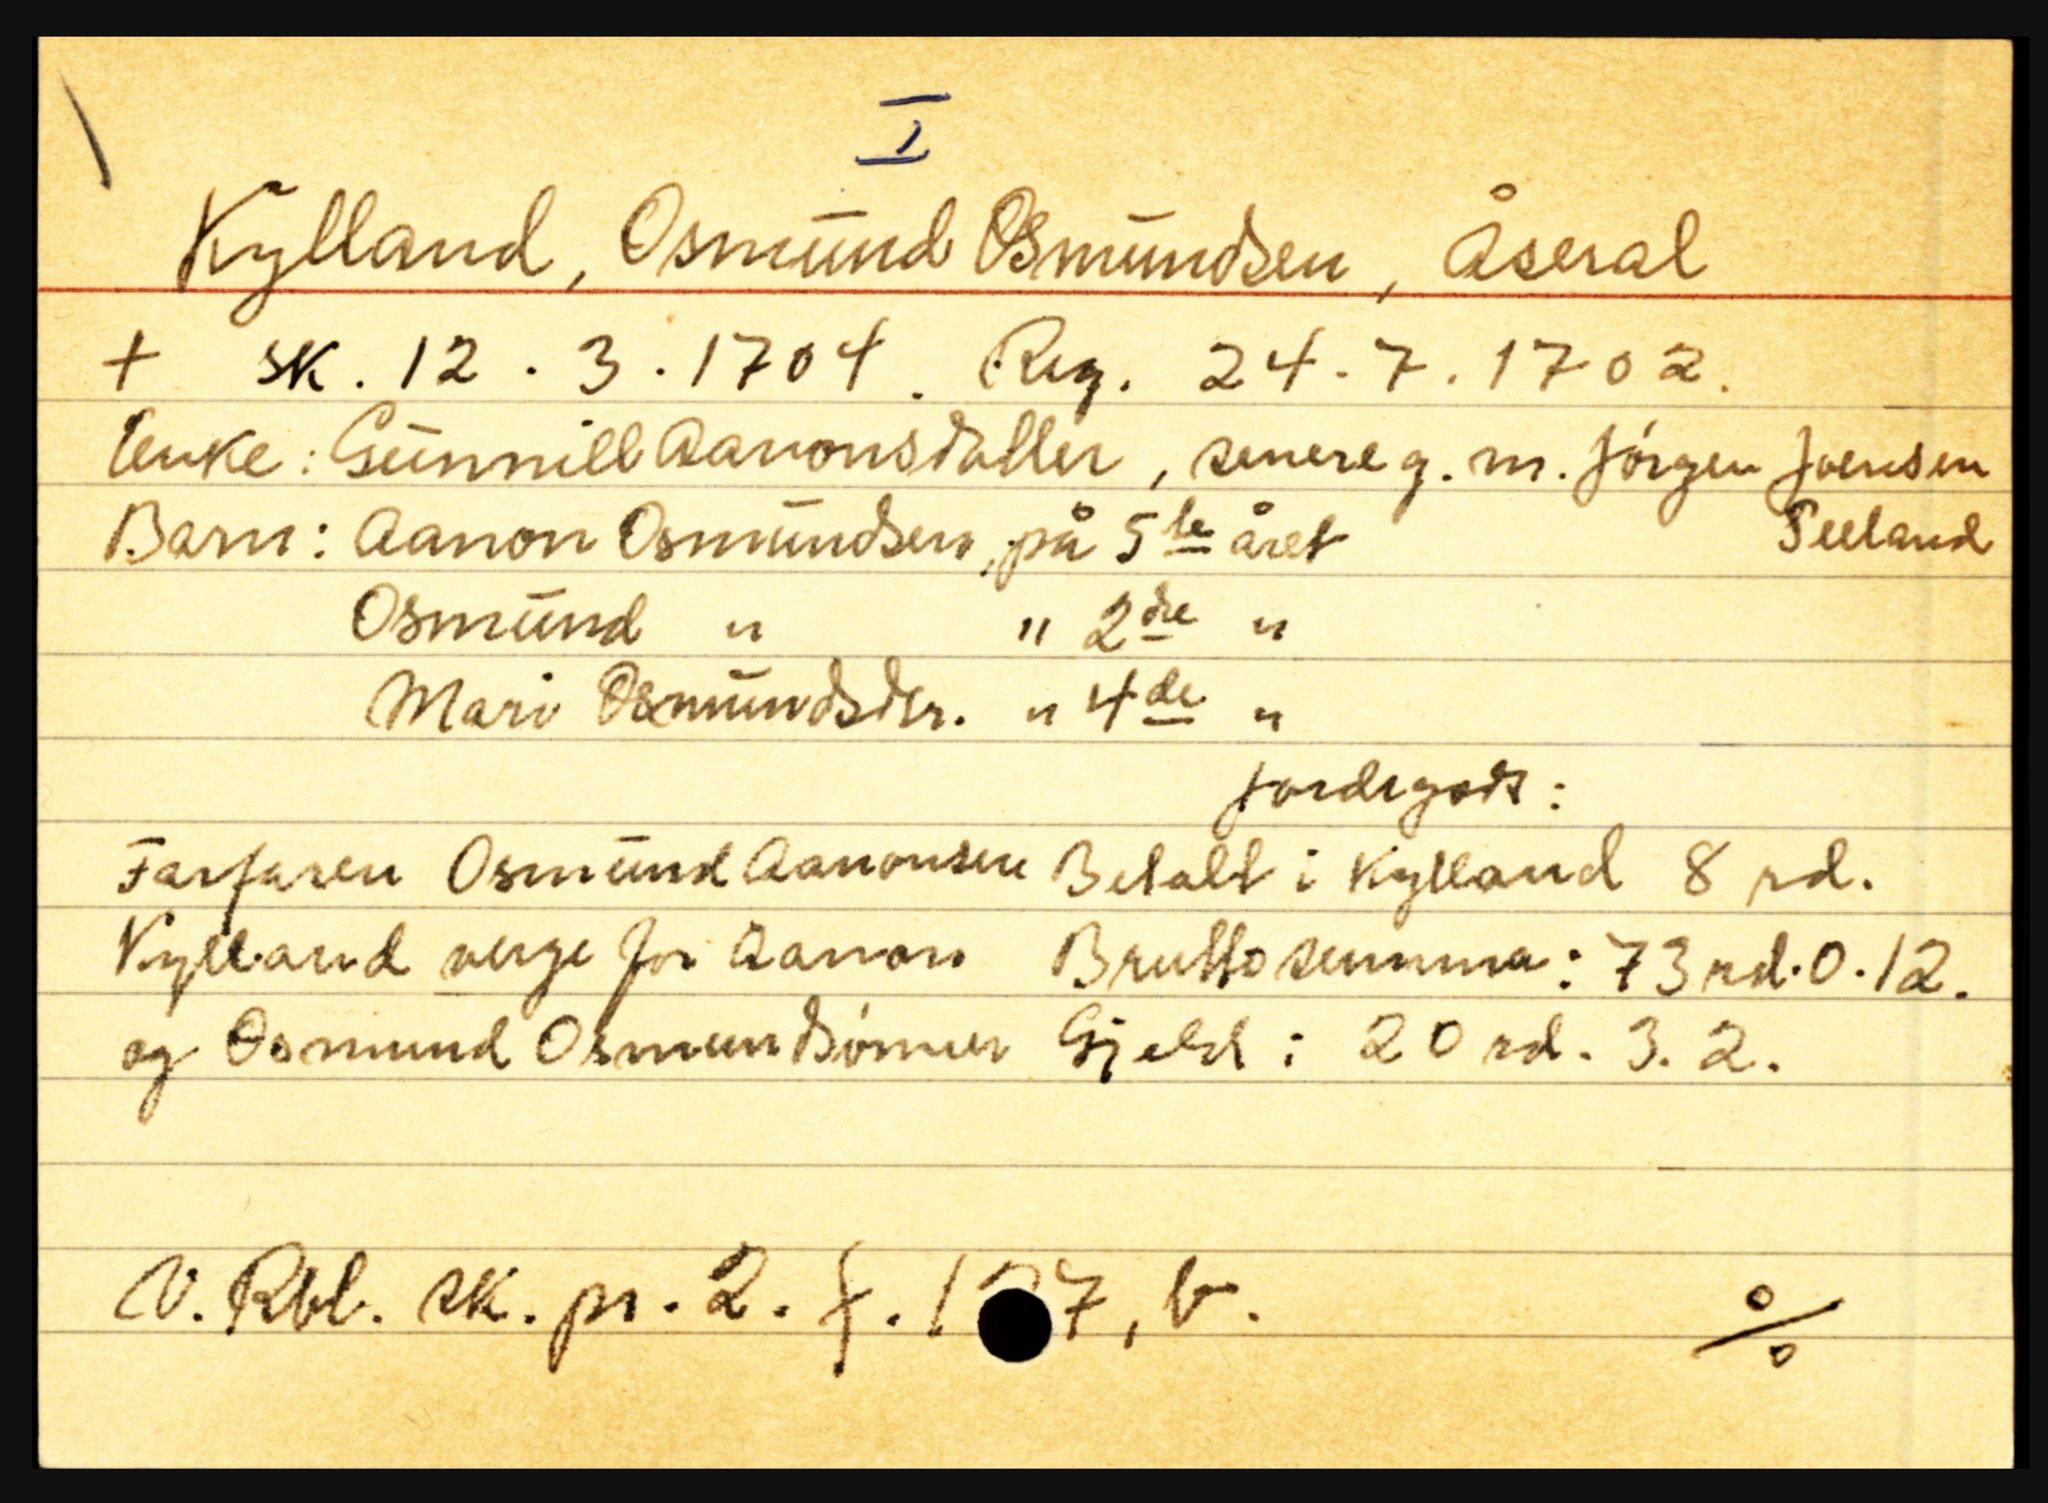 I
Kylland, Osmund Osmundsen, Åseral
+ sk. 12. 3. 1704. Reg. 24. 7. 1702.
Enke: Gunnill Aanonsdatter, senere g. m. Jørgen Joensen
Barn: Aanon Osmundsen, på 5te året
Seeland
Osmund " " 2dre "
Mari Osmundsdtr. " 4de "
Jordegods:
Farfaren Osmund Aanonsen Betalt i Kylland 8 rd.
Kylland verge for Aanon Brutto summa: 73 rd. 0. 12.
og Osmund Osmundsønner Gjeld: 20 rd. 3. 2.
V. Rbl. sk. pr. 2. f. , b.
%